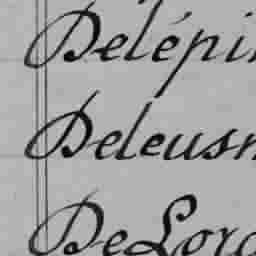 Delépin
Deleusn
DeLoro